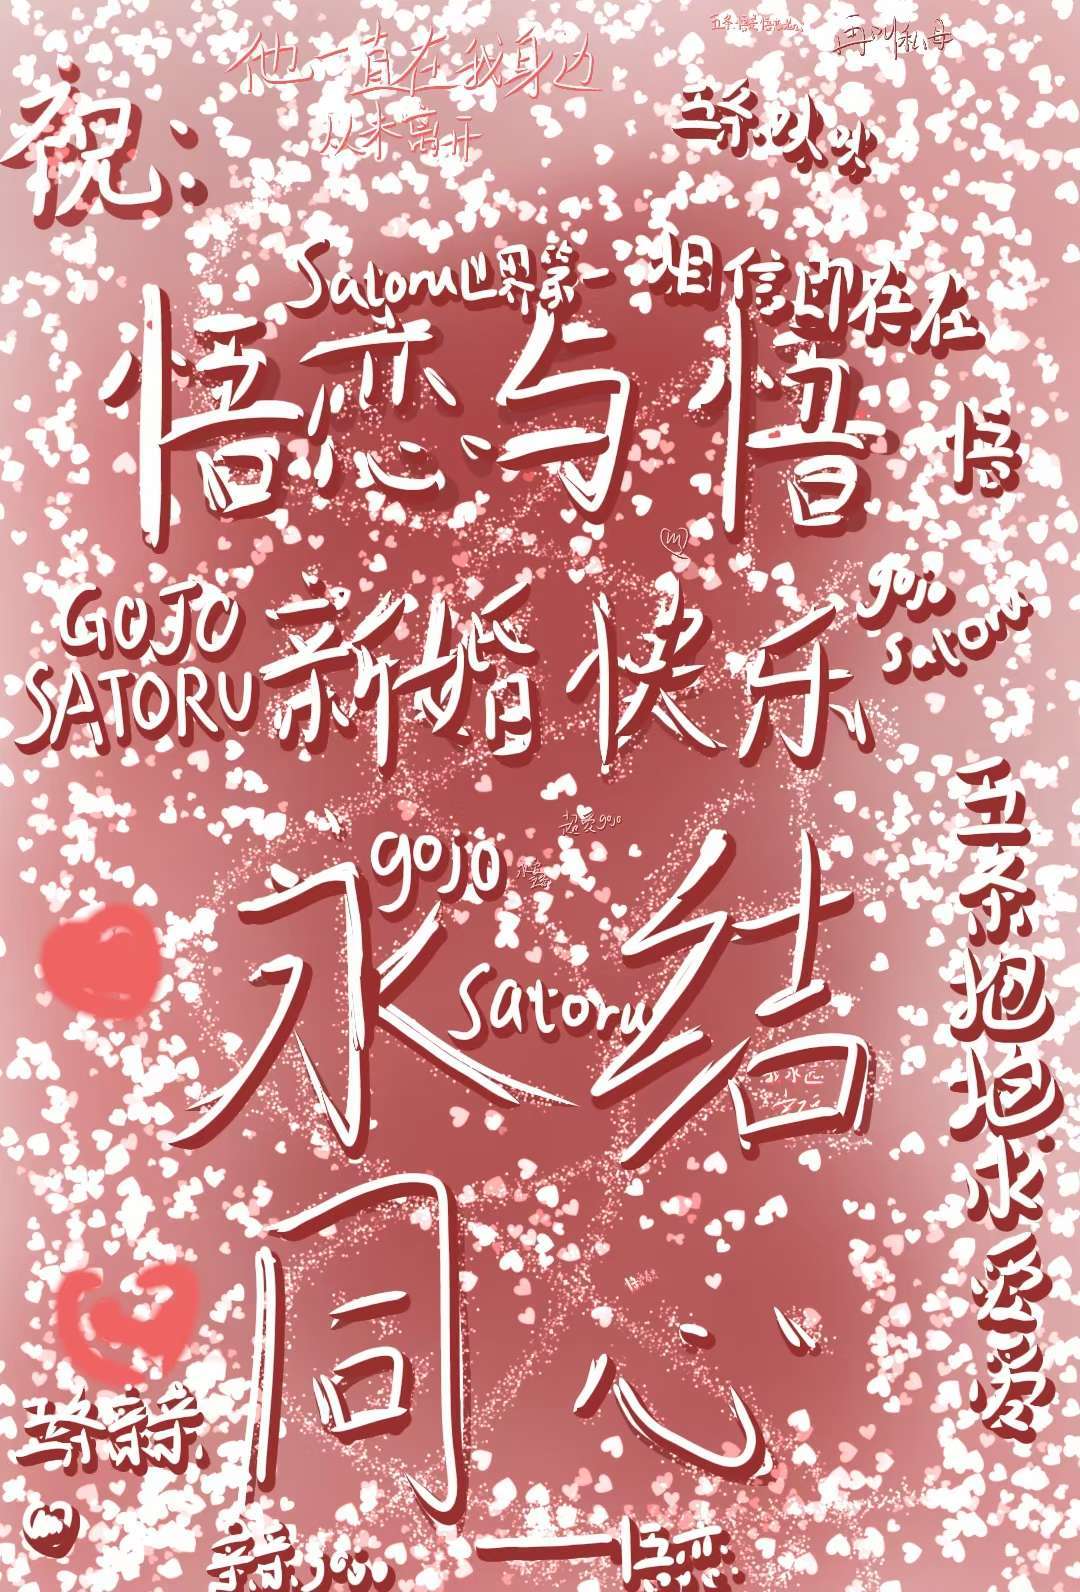 他一直在我身边
从未离开
祝:
Satoru世界第一
相信即存在
悟恋与悟
悟
GOJO
SATORU
新婚快乐
gojo
satoru
超爱gojo
gojo
satoru
永结
同心
五条抱抱求爱爱
五条亲亲
——悟恋